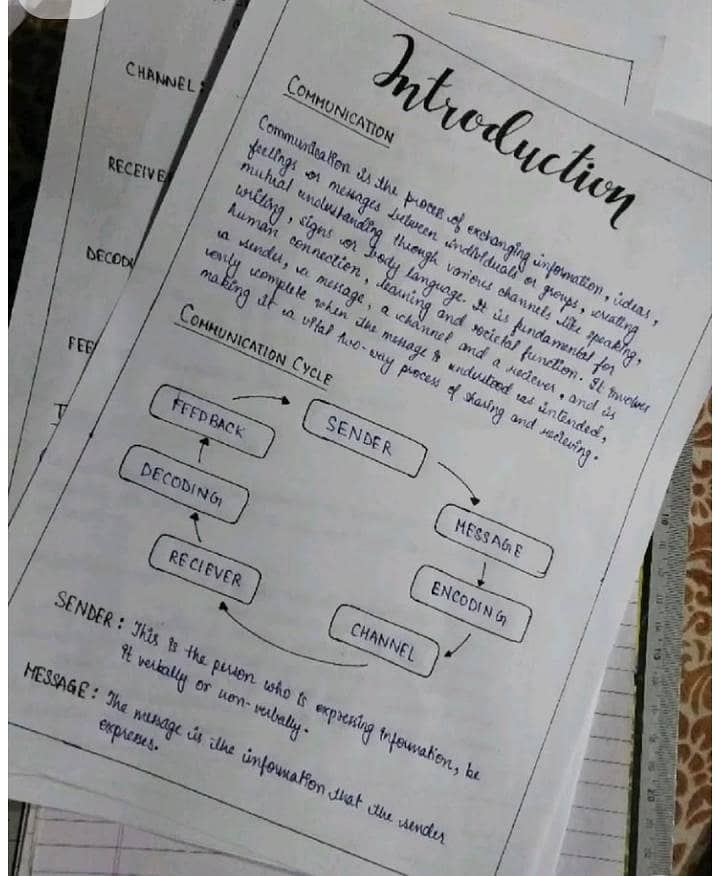 CHANNEL:
RECEIVE
DECOD
FEE
Introduction
COMMUNICATION
Communication is the process of exchanging information, ideas,
feelings or messages between individuals or groups, creating
mutual understanding through various channels like speaking,
writing, signs or body language. It is fundamental for
human connection, learning and societal function. It involves
a sender, a message, a channel and a reciever, and is
only complete when the message is understood as intended,
making it a vital two-way process of sharing and recieving.
COMMUNICATION CYCLE
FEEDBACK
SENDER
DECODING
MESSAGE
RECIEVER
ENCODING
CHANNEL
SENDER: This is the person who is expressing information, be
it verbally or non-verbally.
MESSAGE: The message is the information that the sender
expresses.